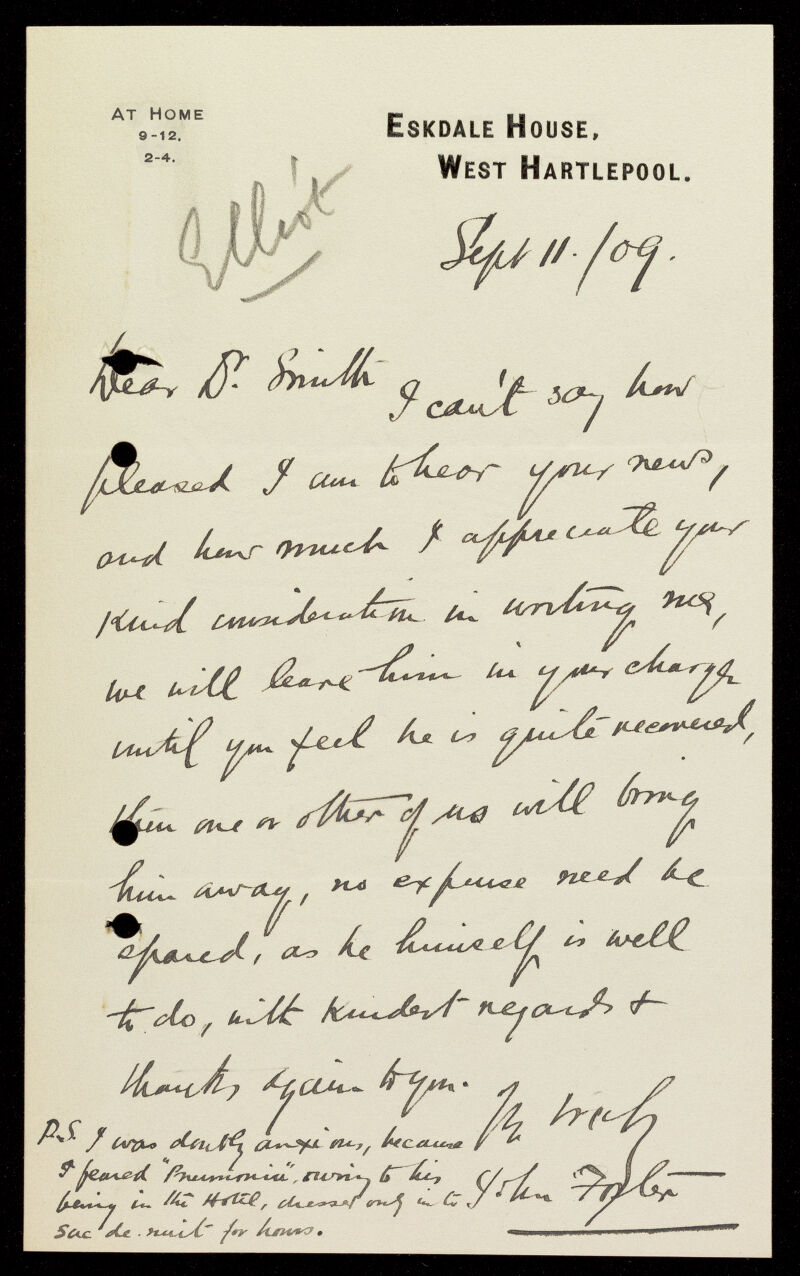 AT HOME
9-12.
2-4.
ESKDALE HOUSE,
WEST HARTLEPOOL.
Elliot
Sept 11./09.
Dear Dr. Smith
I can't say how
pleased I am to hear your news,
and how much I appreciate your
kind consideration in writing me,
we will leave him in your charge
until you feel he is quite recovered,
then one or other of us will bring
him away, no expense need be
spared, as he himself is well
to do, with kindest regards +
thanks again to you.
John
P.S. I was doubly anxious, because
I feared "Pneumonia", owing to his
being in the Hotel, dressed only in
sac de nuit for hours.